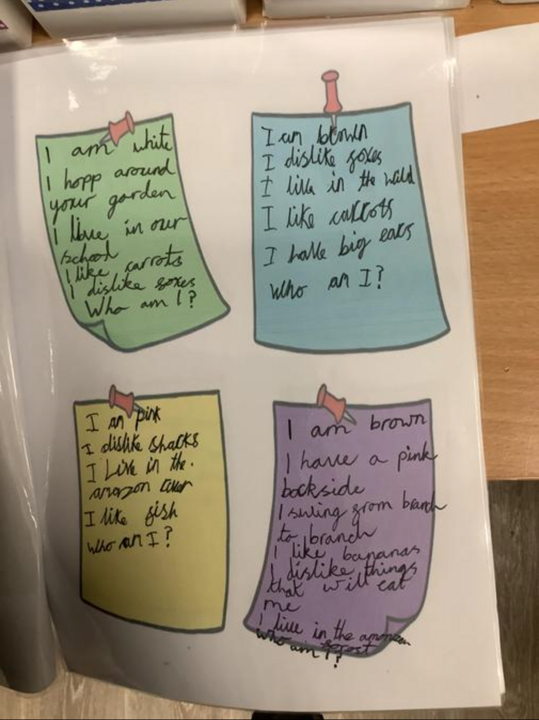 I am white
I hopp around
your garden
I live in our
school
I like carrots
I dislike foxes
Who am I?
I am brown
I dislike foxes
I live in the wild
I like carrots
I have big ears
who am I?
I am pink
I dislike sharks
I Live in the.
amazon river
I like fish
who am I?
I am brown
I have a pink
backside
I swing from branch
to branch
I like bananas
I dislike things
that will eat
me
I live in the amazon
who am I? forest